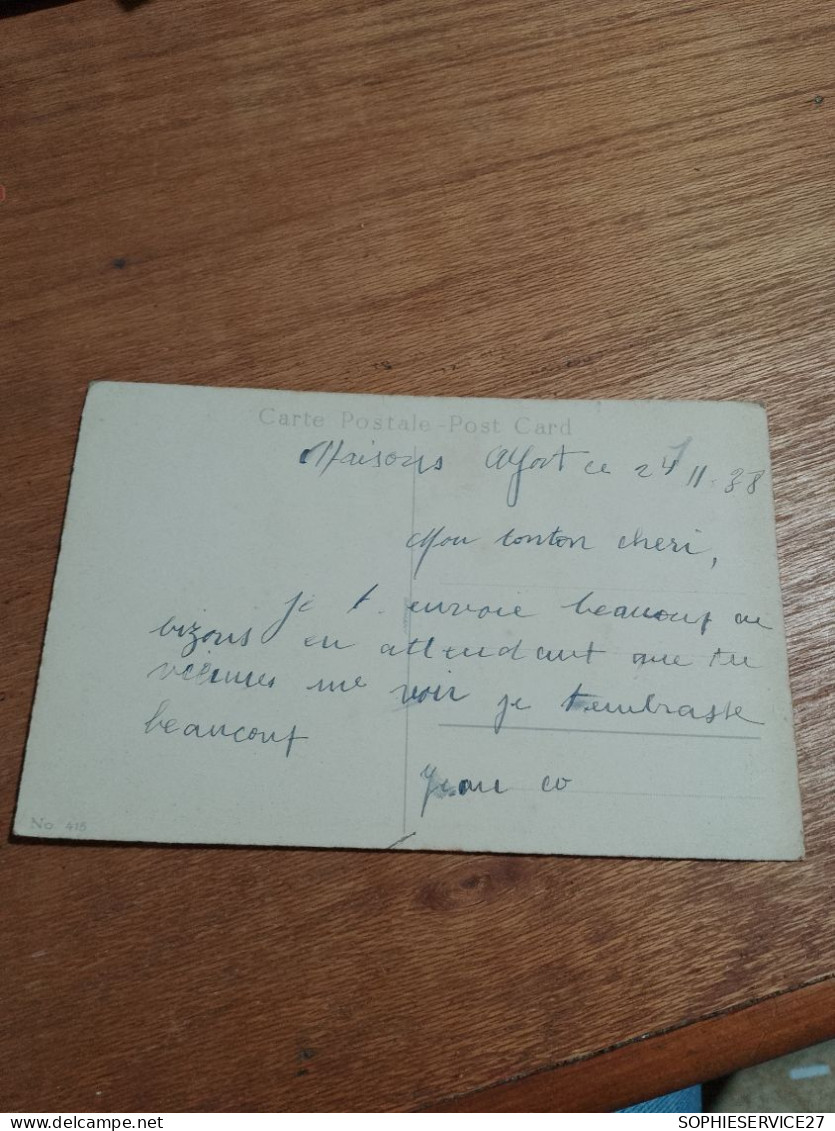 Carte Postale - Post Card
Maisons Alfort ce 24 11. 38
Mon tonton cheri,
je t. envoie beaucoup de
bizous en attendant que tu
viennes me voir je t'embrasse
beaucoup
No. 415
SOPHIESERVICE27